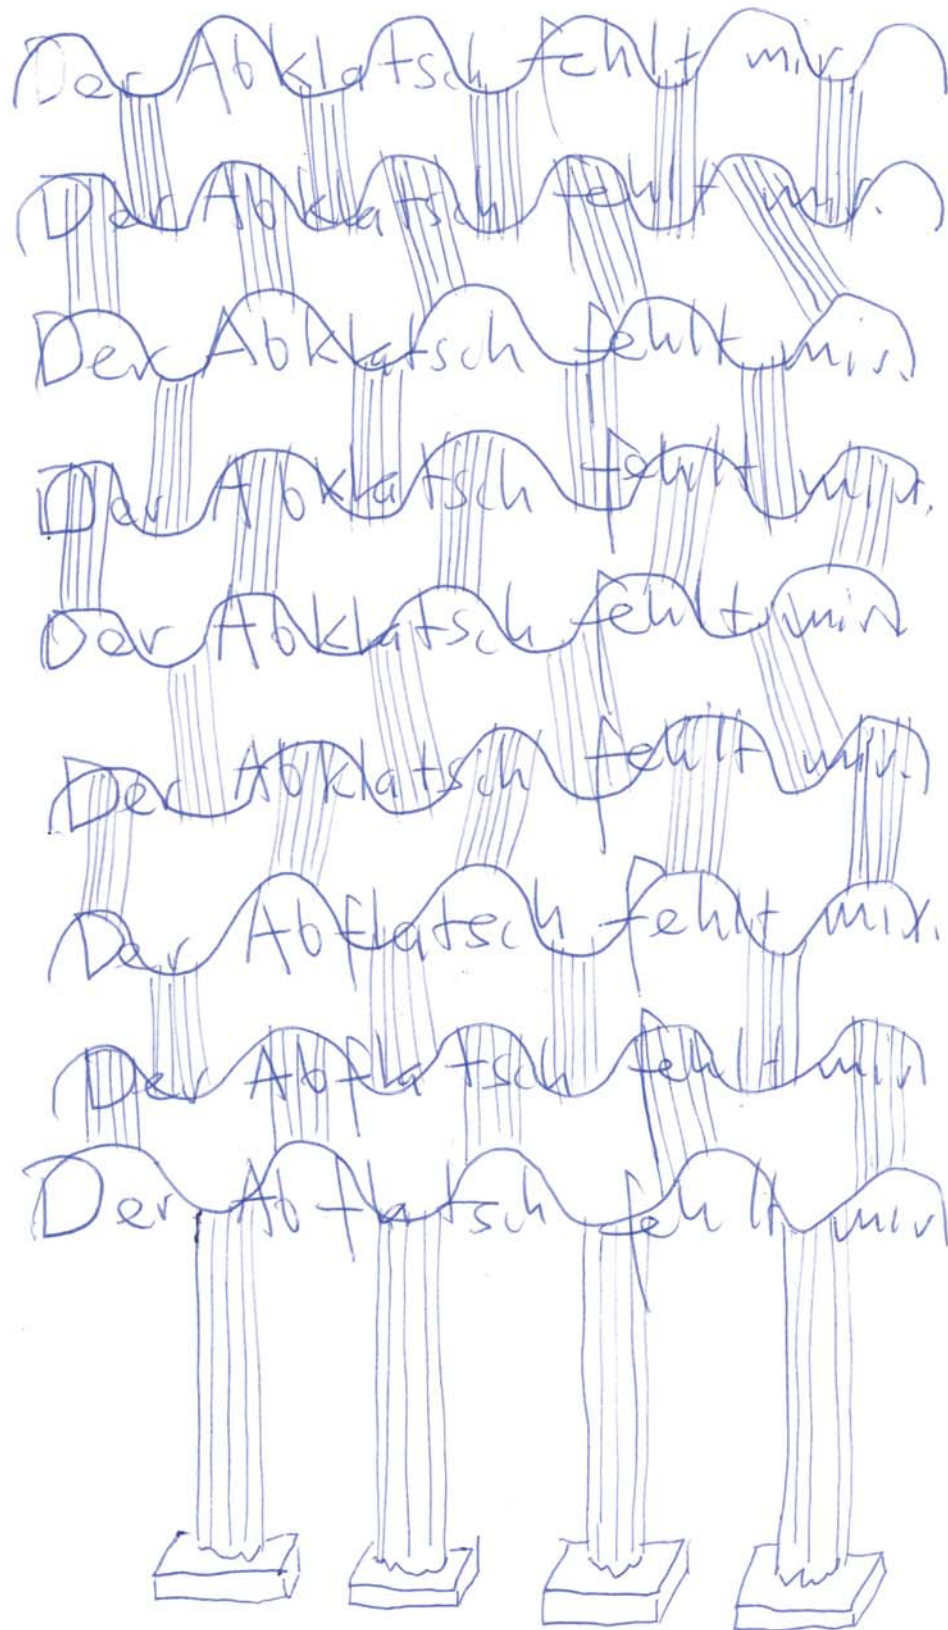 Der Abklatsch fehlt mir.
Der Abklatsch fehlt mir.
Der Abklatsch fehlt mir.
Der Abklatsch fehlt mir.
Der Abklatsch fehlt mir
Der Abklatsch fehlt mir.
Der Abflatsch fehlt mir.
Der Abflatsch fehlt mir
Der Abflatsch fehlt mir